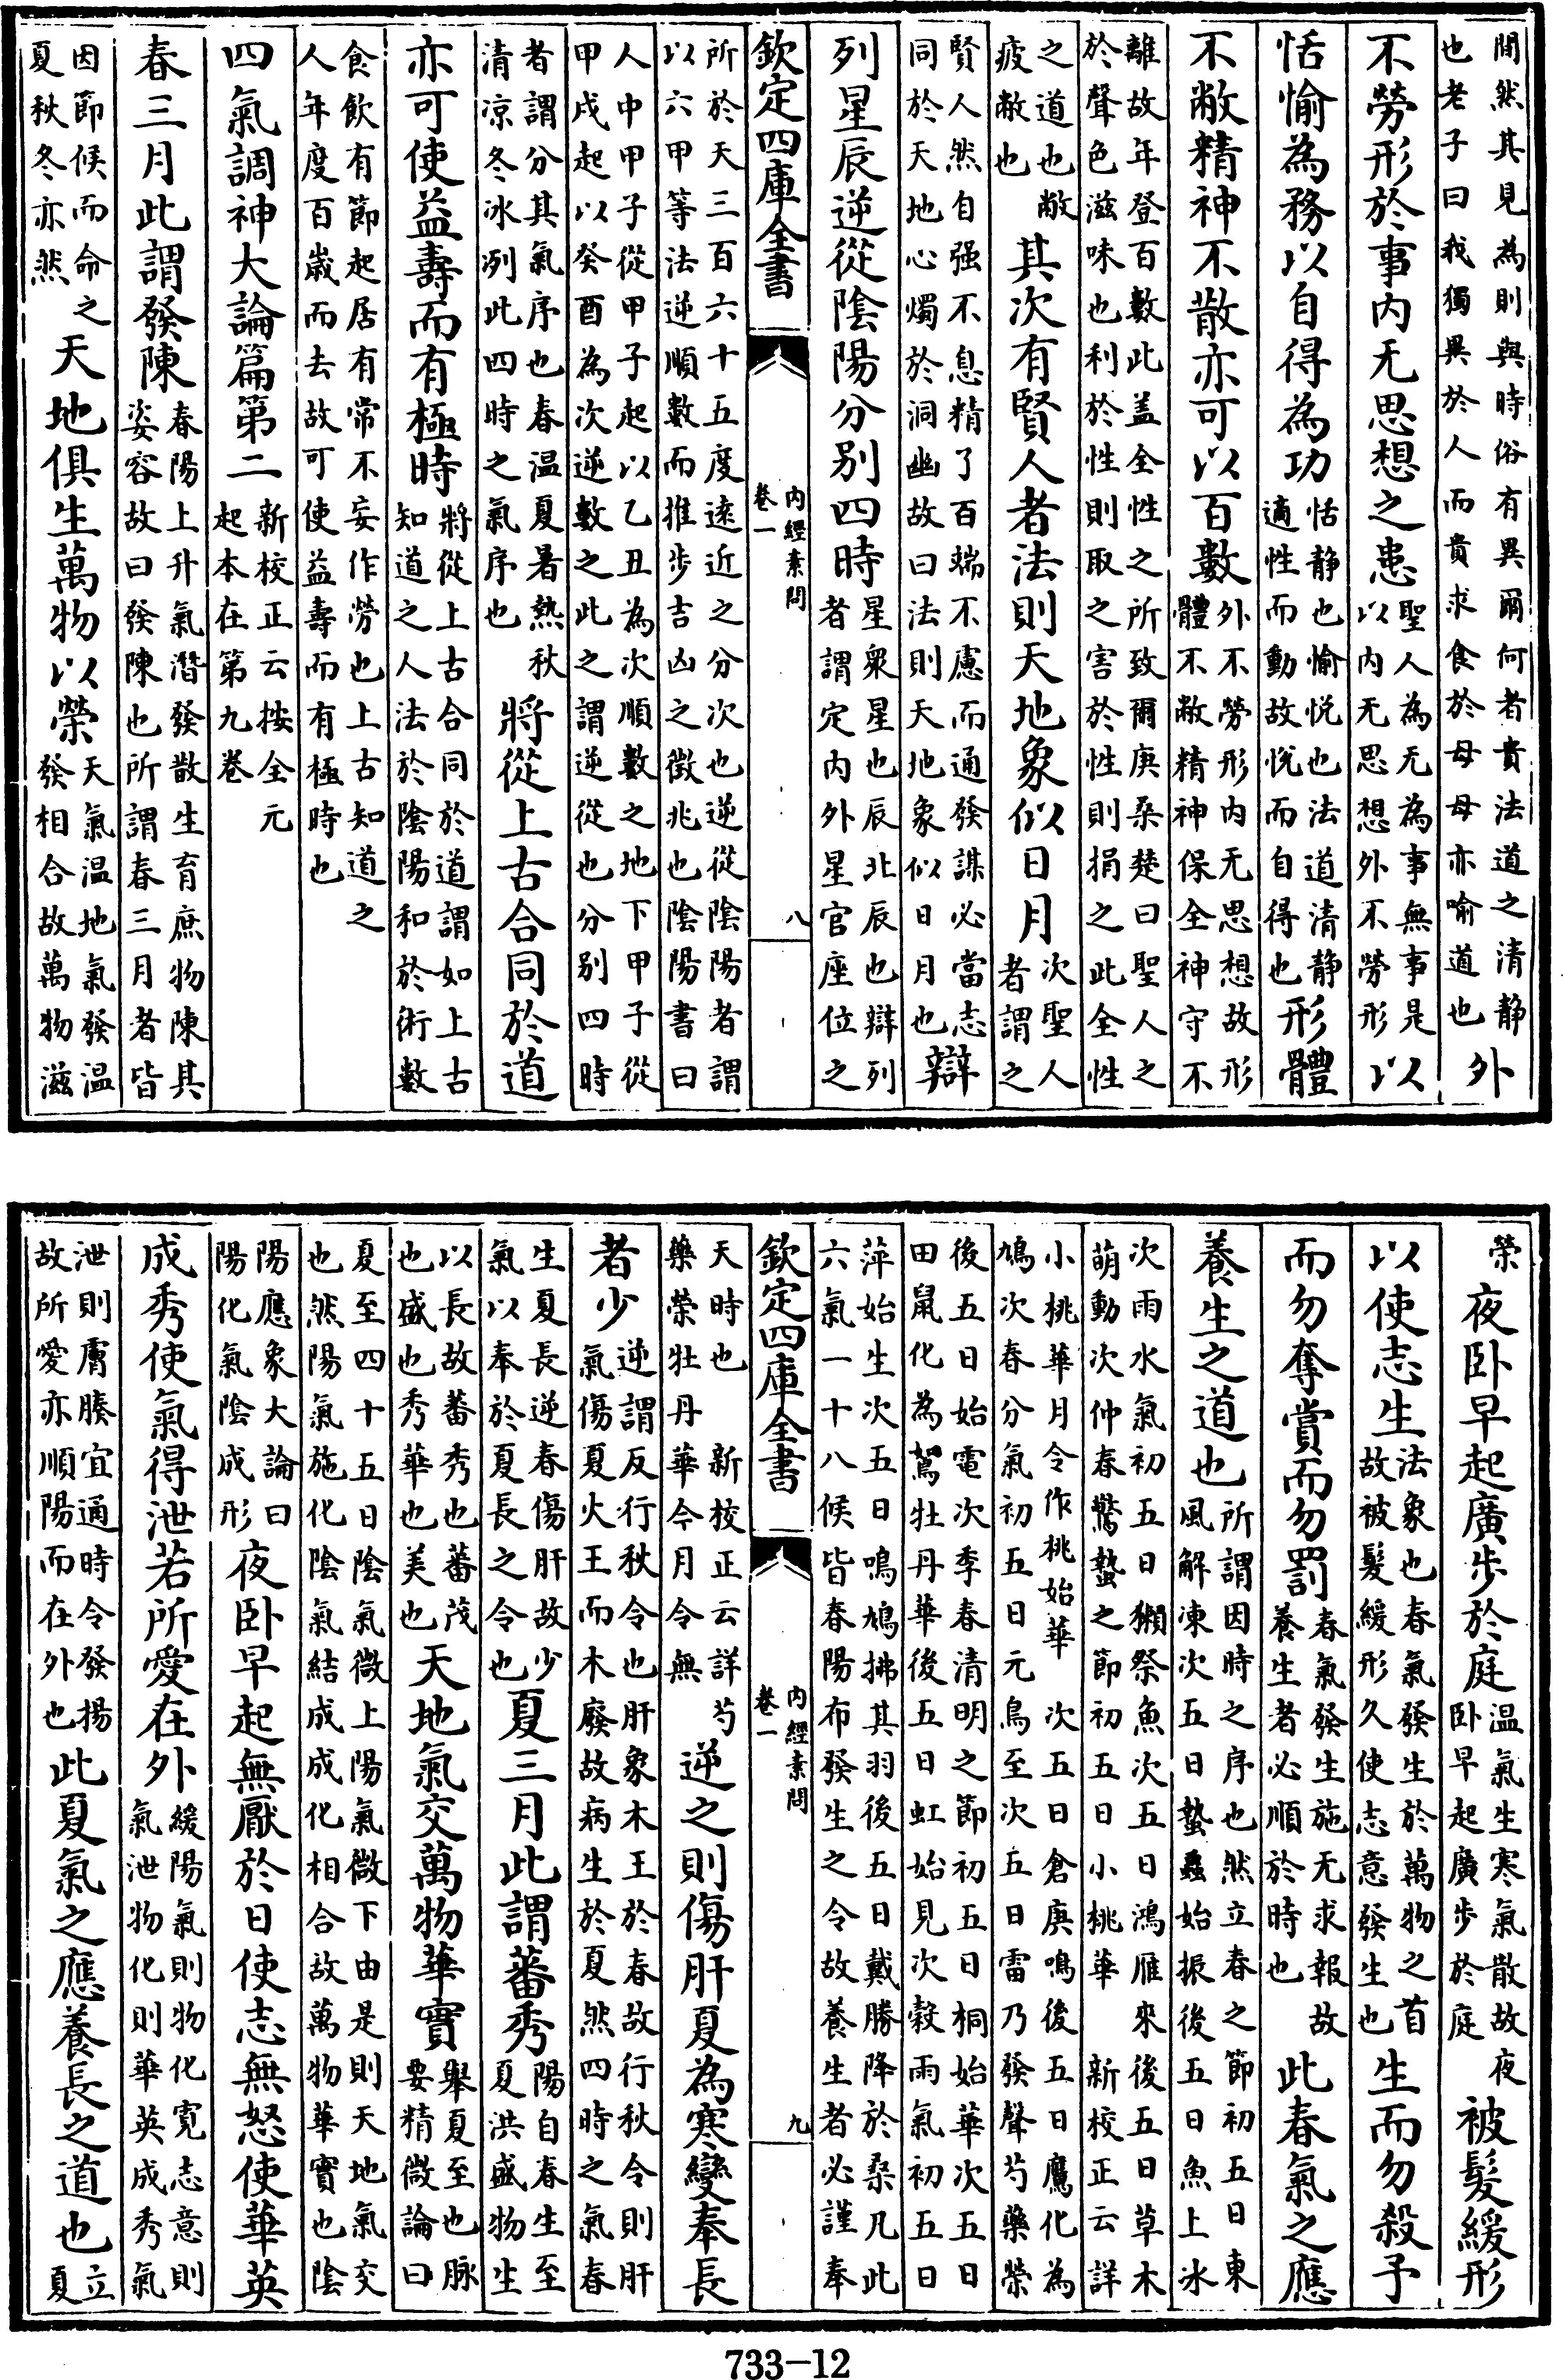 間然其見為則與時俗有異爾何者貴法道之清静
也老子曰我獨異於人而貴求食於母母亦喻道也
外
不勞形於事内无思想之患
聖人為无為事無事是
以内无思想外不勞形
以
恬愉為務以自得為功
恬静也愉悦也法道清静
適性而動故悦而自得也
形體
不敝精神不散亦可以百數
外不勞形内无思想故形
體不敝精神保全神守不
離故年登百數此盖全性之所致爾庚桑楚曰聖人之
於聲色滋味也利於性則取之害於性則捐之此全性
之道也敝
疲敝也
其次有賢人者法則天地象似日月
次聖人
者謂之
賢人然自强不息精了百端不慮而通發謀必當志
同於天地心燭於洞幽故曰法則天地象似日月也
辯
列星辰逆從陰陽分别四時
星衆星也辰北辰也辯列
者謂定内外星官座位之
欽定四庫全書
内經素問
卷一
八
所於天三百六十五度逺近之分次也逆從陰陽者謂
以六甲等法逆順數而推步吉凶之徴兆也陰陽書曰
人中甲子從甲子起以乙丑為次順數之地下甲子從
甲戌起以癸酉為次逆數之此之謂逆從也分别四時
者謂分其氣序也春温夏暑熱秋
清凉冬冰冽此四時之氣序也
將從上古合同於道
亦可使益壽而有極時
將從上古合同於道謂如上古
知道之人法於陰陽和於術數
食飲有節起居有常不妄作勞也上古知道之
人年度百歳而去故可使益壽而有極時也
四氣調神大論篇第二
新校正云按全元
起本在第九卷
春三月此謂發陳
春陽上升氣潛發散生育庶物陳其
姿容故曰發陳也所謂春三月者皆
因節候而命之
夏秋冬亦然
天地俱生萬物以榮
天氣温地氣發温
發相合故萬物滋
榮
夜卧早起廣步於庭
温氣生寒氣散故夜
卧早起廣步於庭
被髮緩形
以使志生
法象也春氣發生於萬物之首
故被髮緩形久使志意發生也
生而勿殺予
而勿奪賞而勿罰
春氣發生施无求報故
養生者必順於時也
此春氣之應
養生之道也
所謂因時之序也然立春之節初五日東
風解凍次五日蟄蟲始振後五日魚上冰
次雨水氣初五日獺祭魚次五日鴻雁來後五日草木
萌動次仲春驚蟄之節初五日小桃華新校正云詳
小桃華月令作桃始華次五日倉庚鳴後五日鷹化為
鳩次春分氣初五日元鳥至次五日雷乃發聲芍藥榮
後五日始電次季春清明之節初五日桐始華次五日
田鼠化為鴽牡丹華後五日虹始見次穀雨氣初五日
萍始生次五日鳴鳩拂其羽後五日戴勝降於桑凡此
六氣一十八候皆春陽布發生之令故養生者必謹奉
欽定四庫全書
内經素問
卷一
九
天時也新校正云詳芍
藥榮牡丹華今月令無
逆之則傷肝夏為寒變奉長
者少
逆謂反行秋令也肝象木王於春故行秋令則肝
氣傷夏火王而木廢故病生於夏然四時之氣春
生夏長逆春傷肝故少
氣以奉於夏長之令也
夏三月此謂蕃秀
陽自春生至
夏洪盛物生
以長故蕃秀也蕃茂
也盛也秀華也美也
天地氣交萬物華實
舉夏至也脉
要精微論曰
夏至四十五日陰氣微上陽氣微下由是則天地氣交
也然陽氣施化陰氣結成成化相合故萬物華實也陰
陽應象大論曰
陽化氣陰成形
夜卧早起無厭於日使志無怒使華英
成秀使氣得泄若所愛在外
緩陽氣則物化寛志意則
氣泄物化則華英成秀氣
泄則膚腠宜通時令發揚
故所愛亦順陽而在外也
此夏氣之應養長之道也
立
夏
733-12